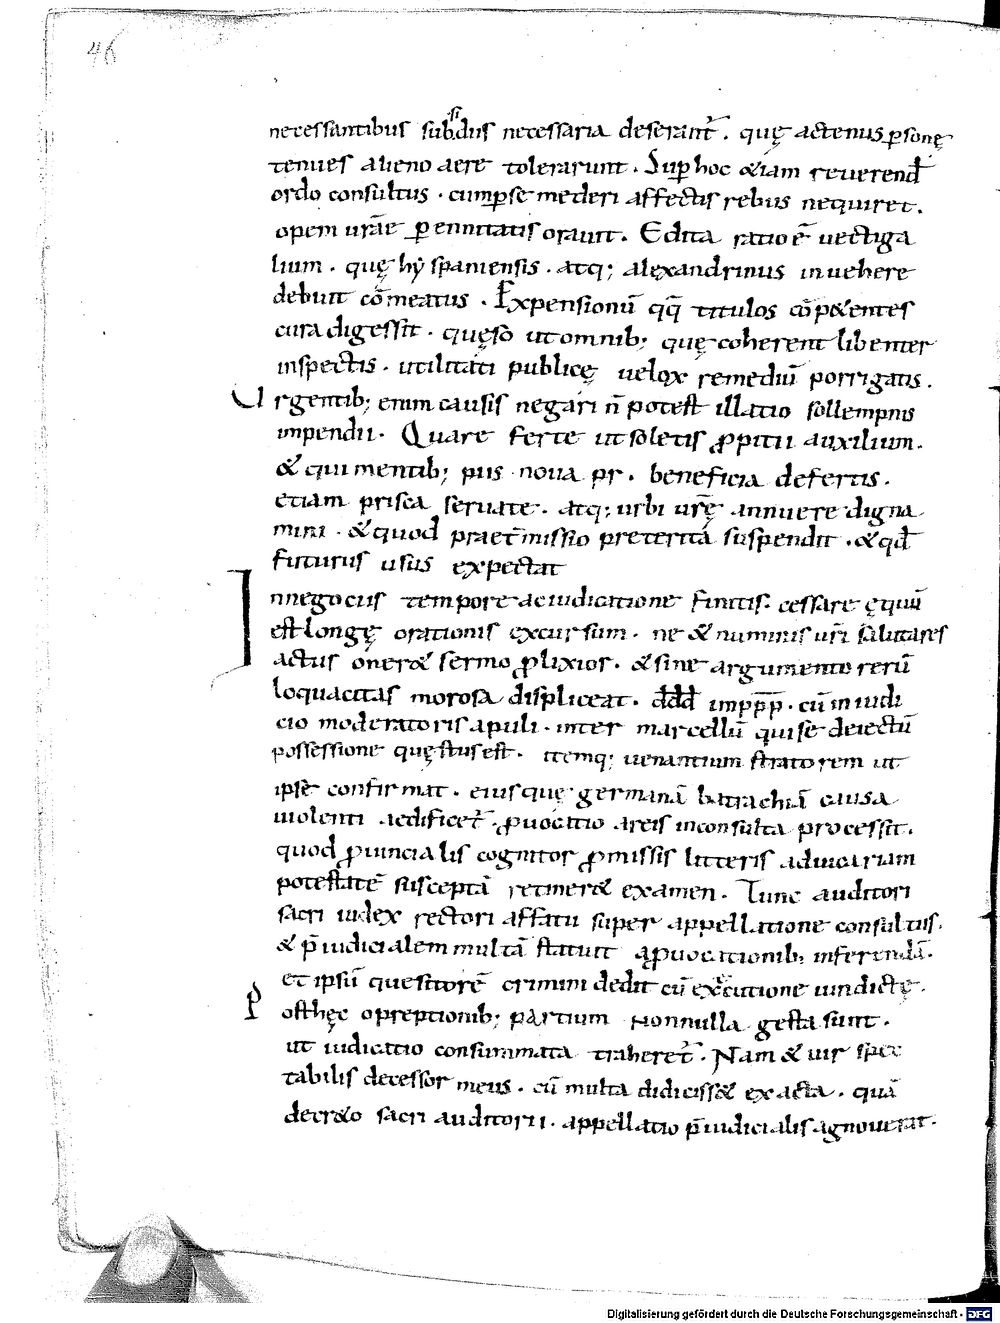 46
necessantibus subsidus necessaria deserant̄. quę actenus ꝑsonę
tenues alieno aere tolerarunt. Suꝑ hoc &iam reuerend̄
ordo consultus. cumꝑse mederi affectis rebus nequiret.
opem urāe ꝑennitatis orauit. Edita ratio ē uectiga
lium. quę hyspaniensis. atq; alexandrinus inuehere
debuit cōmeatus. Expensionū qq̄ titulos cōp&entes
cura digessit. quęso ut omnib; quę coherent libenter
inspectis. utilitati publicę uelox remediū porrigatis.
Urgentib; enim causis negari n̄ potest illatio sollempnis
impendii. Quare ferte ut soletis ꝓpitii auxilium.
& qui mentib; piis noua pr. beneficia defertis.
etiam prisca seruate. atq; urbi urę̄ annuere digna
mini. & quod praet̄missio preteritā suspendit. & qd̄
futurus usus expectat
In negociis tempore ac iudicatione finitis. cessare ęquū
est longę orationis excursum. ne & numinis ur̄i salutares
actus oner& sermo ꝓlixior. & sine argumento rerū
loquacitas morosa displiceat. d̄d̄d̄ imp̄p̄p̄. cū in iudi
cio moderatoris apuli. inter marcellū qui se deiectū
possessione quęstus est. itemq; uenantium stratorem ut
ipse confirmat. eiusque germanā batrachiā causa
uiolenti aedificet̄. ꝓuocatio areis inconsulta processit.
quod ꝓuincialis cognitor ꝓmissis litteris ad uicarium
potestatē susceptā retiner& examen. Tunc auditori
sacri iudex rectori affatu super appellatione consultus.
& p̄iudicialem multā statuit aꝓuocationib; inferendā.
et ipsū quesitorē crimini dedit cū excecutione uindictę.
Posthęc opreptionib; partium Nonnulla gesta sunt.
ut iudicatio consummata traheret̄. Nam & uir spec
tabilis decessor meus. cū multa didiciss& exacta. quā
decr&o sacri auditorii. appellatio p̄iudicialis agnouerat.
Digitalisierung gefördert durch die Deutsche Forschungsgemeinschaft - DFG